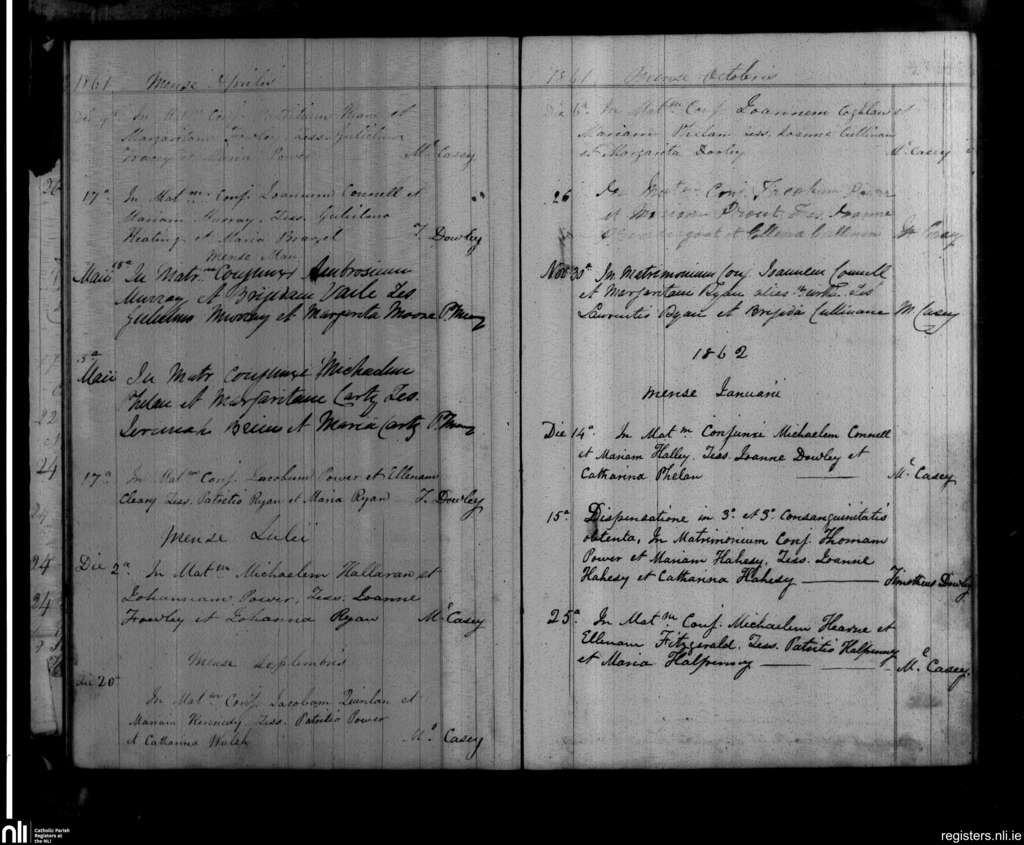 1861 Mense Aprilis
In Mat^m Conf. Patritium et
Margaritam Tess. Gulielmo
et Maria Power Mc Casey
17a In Mat^m Conf. Joannem Connell et
Mariam Murray, Tess. Gulielmo
Keating et Maria T. Dowley
Mense Maii
Maii 15a In Matr^m Conjunxi Ambrosium
Murray et Brigidam Vaile Tes
Gulielmus Murray et Margarita Moore
5a
Maii In Matr Conjunxi Michaelem
Phelan et Margaritam Carty Tes.
Jeremiah Brien et Maria Carty
17a In Mat^m Conf. Jacobum Power et Ellenam
Cleary Tess. Patritio Ryan et Maria Ryan T. Dowley
Mense Julii
Die 2a In Mat^m Michaelem Hallaran et
Johannam Power, Tess. Joanne
Frawley et Johanna Ryan Mc Casey
Mense Septembris
Die 20a
In Mat^m Conf. Jacobum Quinlan et
Mariam Kennedy, Tess. Patritio Power
et Catharina Walsh Mc Casey
1861 Mense Octobris
Die 6a In Mat^m Conf. Joannem Coghlan et
Mariam Phelan, Tess. Joanne Cullinan
et Margarita Dooley Mc Casey
26 In Mat^m Conj.
et Prout, Tes. Joanne
et Ellena Cullinan Casey
Nov 30a In Matrimonium Conj. Joannem Connell
et Margaritam Ryan alias Burke. Tes
Laurentio Ryan et Brigida Cullinane M Casey
1862
Mense Januarii
Die 14a In Mat^m Conjunxi Michaelem Connell
et Mariam Halley. Tess. Joanne Dowley et
Catharina Phelan Mc Casey
15a Dispensatione in 3o et 3o Consanguinitatis
obtenta, In Matrimonium Conf. Thomam
Power et Mariam Hahesy, Tess. Joanne
Hahesy et Catharina Hahesy Timotheus Dowley
25a In Mat^m Conf. Michaelem Hearne et
Ellenam Fitzgerald, Tess. Patritio Halpenny
et Maria Halpenny Mc Casey.
24
24
nli
Catholic Parish
Registers at
the NLI
registers.nli.ie